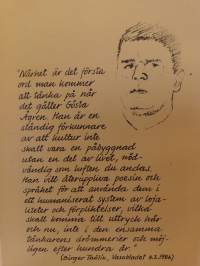 "Närhet är det första
ord man kommer
att tänka på när
det gäller Gösta
Ågren. Han är en
ständig förkunnare
av att kultur inte
skall vara en påbyggnad
utan en del av livet, nöd-
vändig som luften du andas.
Han vill återuppliva poesin och
språket för att använda dem i
ett humaniserat system av loja-
liteter och förpliktelser, vilka
skall komma till uttryck här
och nu, inte i den ensamma
tänkarens drömmerier och möj-
ligen efter hundra år."
(Birger Thölix, Vasabladet 4.2.1986)